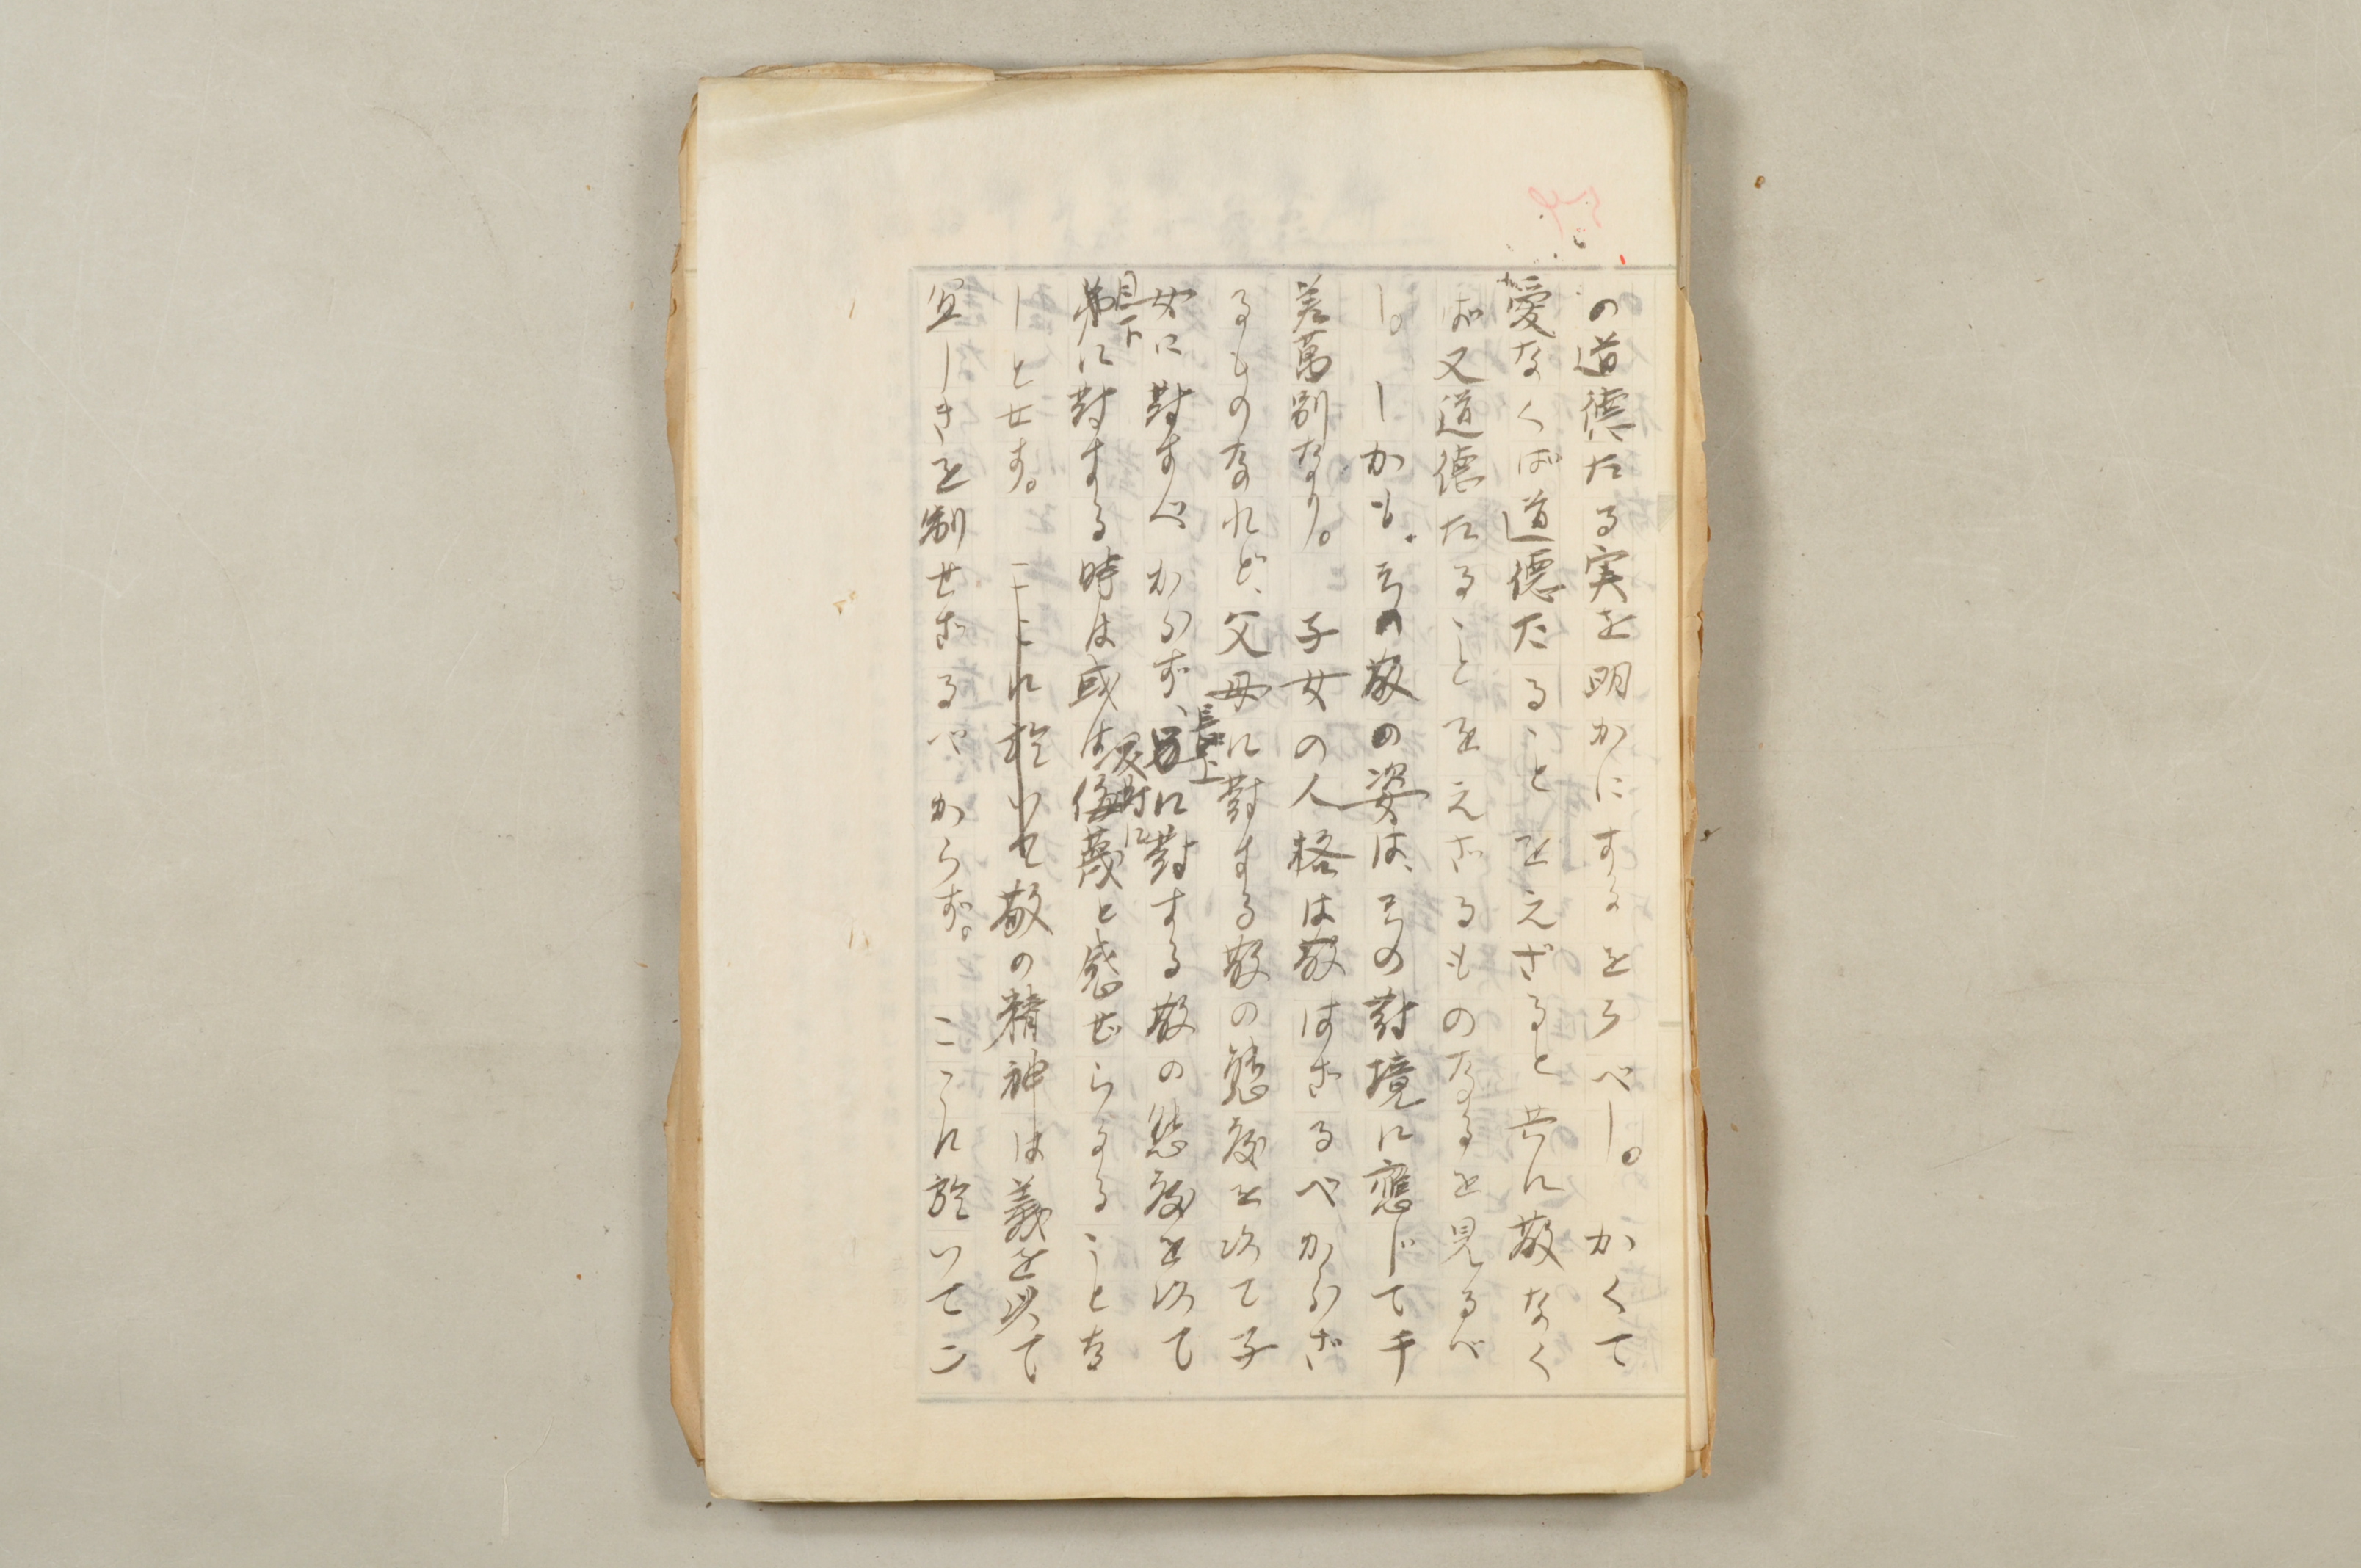 の道徳たる実を明かにするをうべし。かくて
愛なくば道徳たることをえざると共に敬なく
ば又道徳たることをえざるものなるを見るべ
し。しかも、その敬の姿は、その對境に應じて千
差萬別なり。子女の人格は敬はざるべからざ
るものなれど、父母に對する敬の態度を以て子
女に對すべからず、長上に對する敬の態度を以て
目下に對する時は或は反對に侮蔑と感ぜらるることな
しとせず。敬の精神は義を以て
宜しきを制せざるべからず。ここに於いてこ